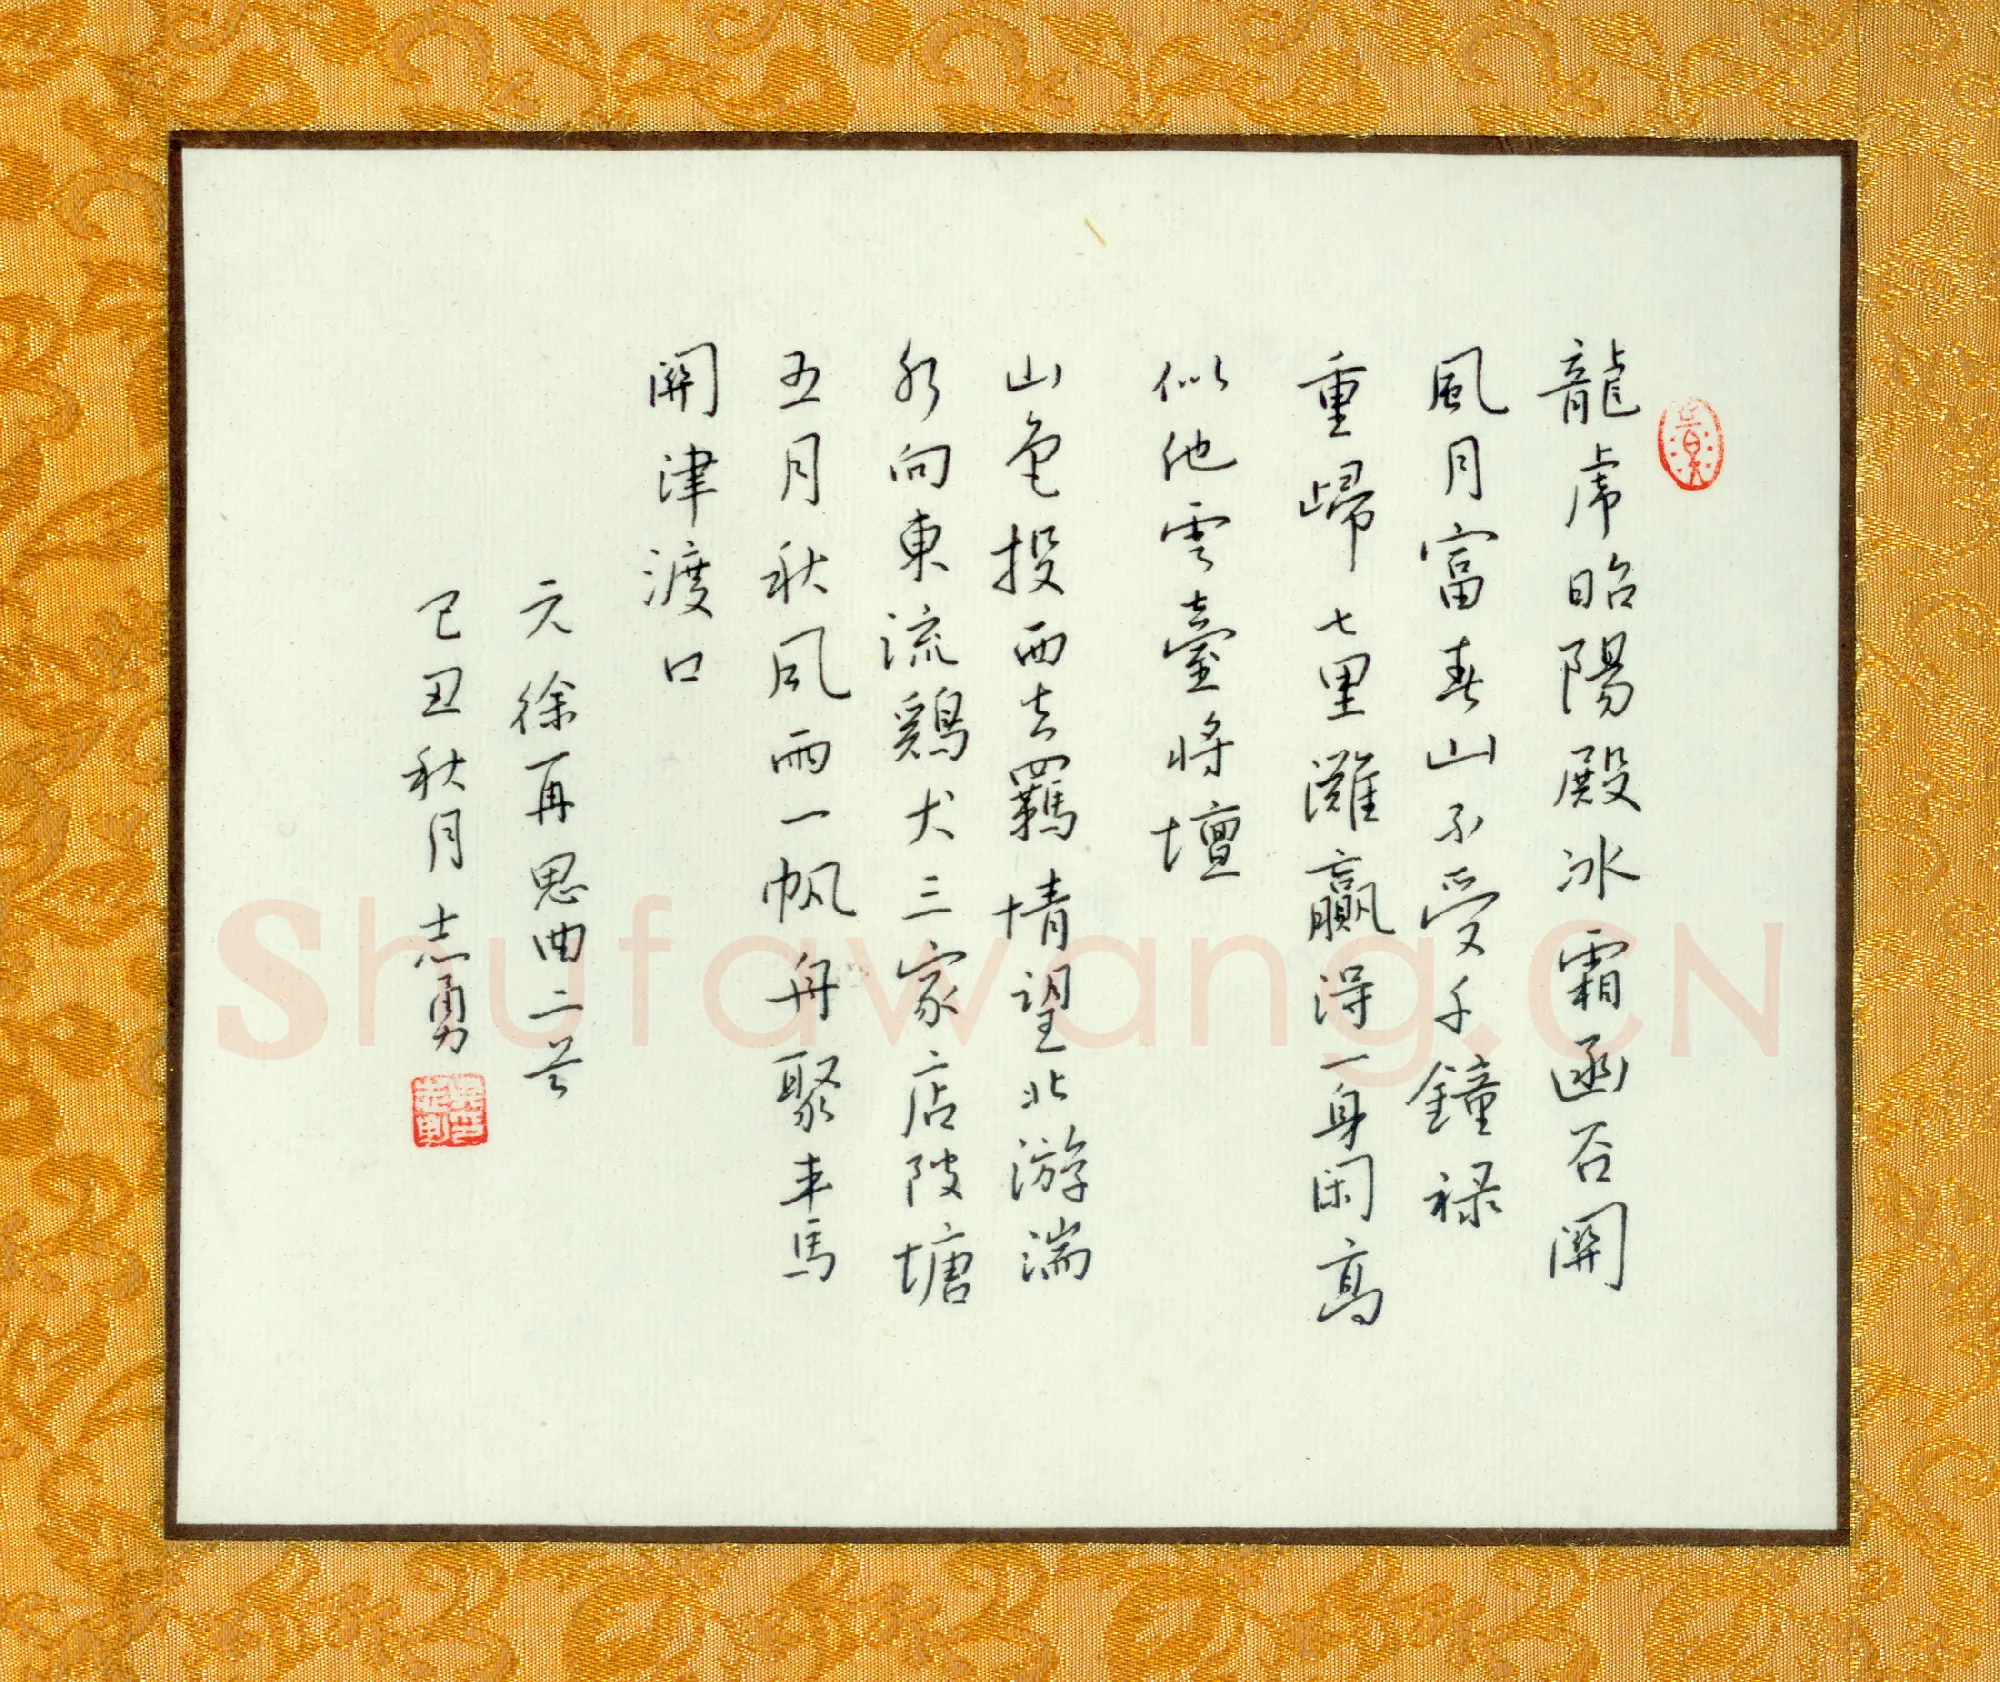 龍虎昭陽殿冰霜函谷關
風月富春山不受千鐘禄
重歸七里灘贏得一身閑高
似他雲臺將壇
山色投西去羈情望北游湍
水向東流鷄犬三家店陂塘
五月秋風雨一帆舟聚車馬
關津渡口
元徐再思曲二首
己丑秋月志勇
Shufawang.CN